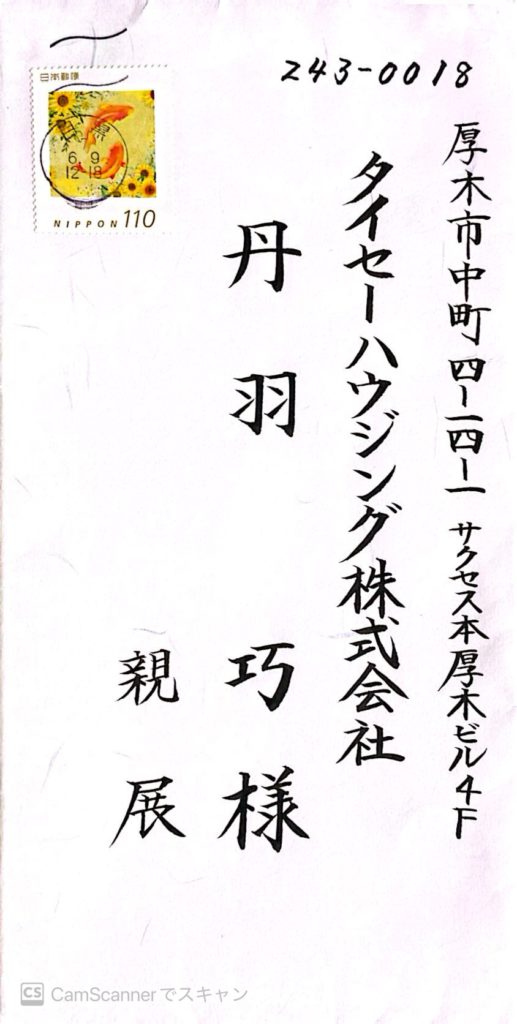 243-0018
厚木市中町四-一四-一 サクセス本厚木ビル4F
タイセーハウジング株式会社
丹羽 巧様
親展
日本郵便
6. 9
12-18
NIPPON 110
CS CamScannerでスキャン